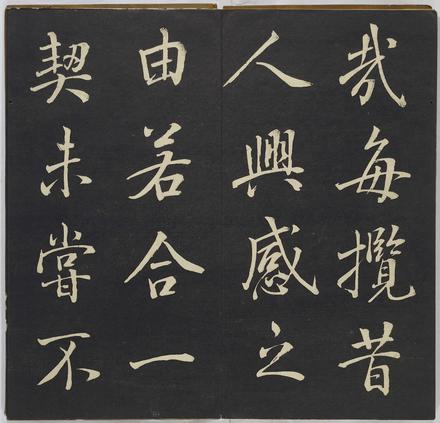 哉每攬昔
人興感之
由若合一
契未甞不